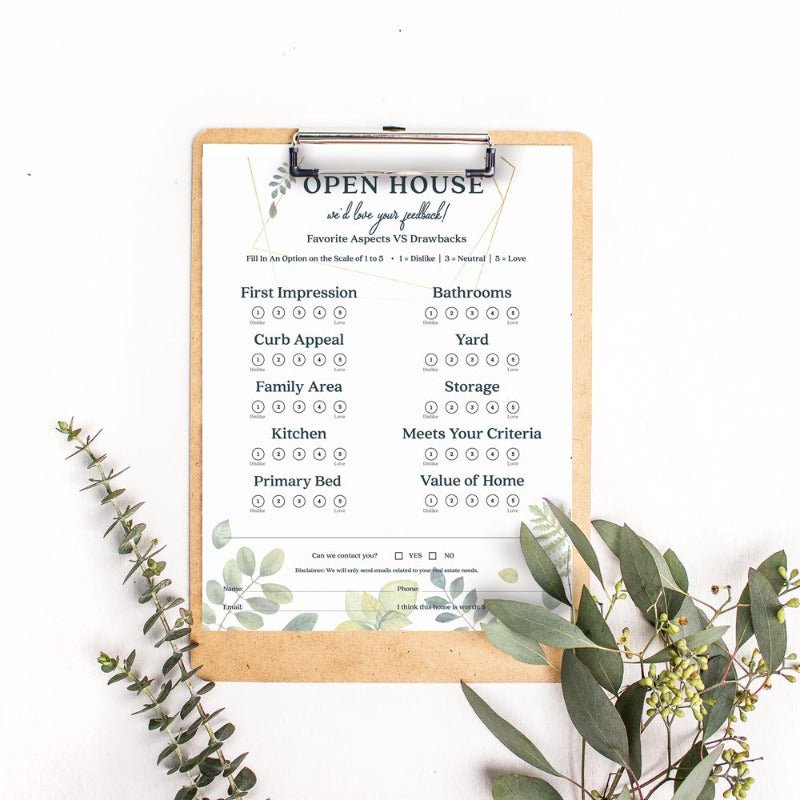 OPEN HOUSE
we'd love your feedback!
Favorite Aspects VS Drawbacks
Fill In An Option on the Scale of 1 to 5 • 1 = Dislike | 3 = Neutral | 5 = Love
First Impression
1 2 3 4 5
Dislike Love
Curb Appeal
1 2 3 4 5
Dislike Love
Family Area
1 2 3 4 5
Dislike Love
Kitchen
1 2 3 4 5
Dislike Love
Primary Bed
1 2 3 4 5
Dislike Love
Bathrooms
1 2 3 4 5
Dislike Love
Yard
1 2 3 4 5
Dislike Love
Storage
1 2 3 4 5
Dislike Love
Meets Your Criteria
1 2 3 4 5
Dislike Love
Value of Home
1 2 3 4 5
Dislike Love
Can we contact you? YES NO
Disclaimer: We will only send emails related to your real estate needs.
Name: Phone:
Email: I think this home is worth: $